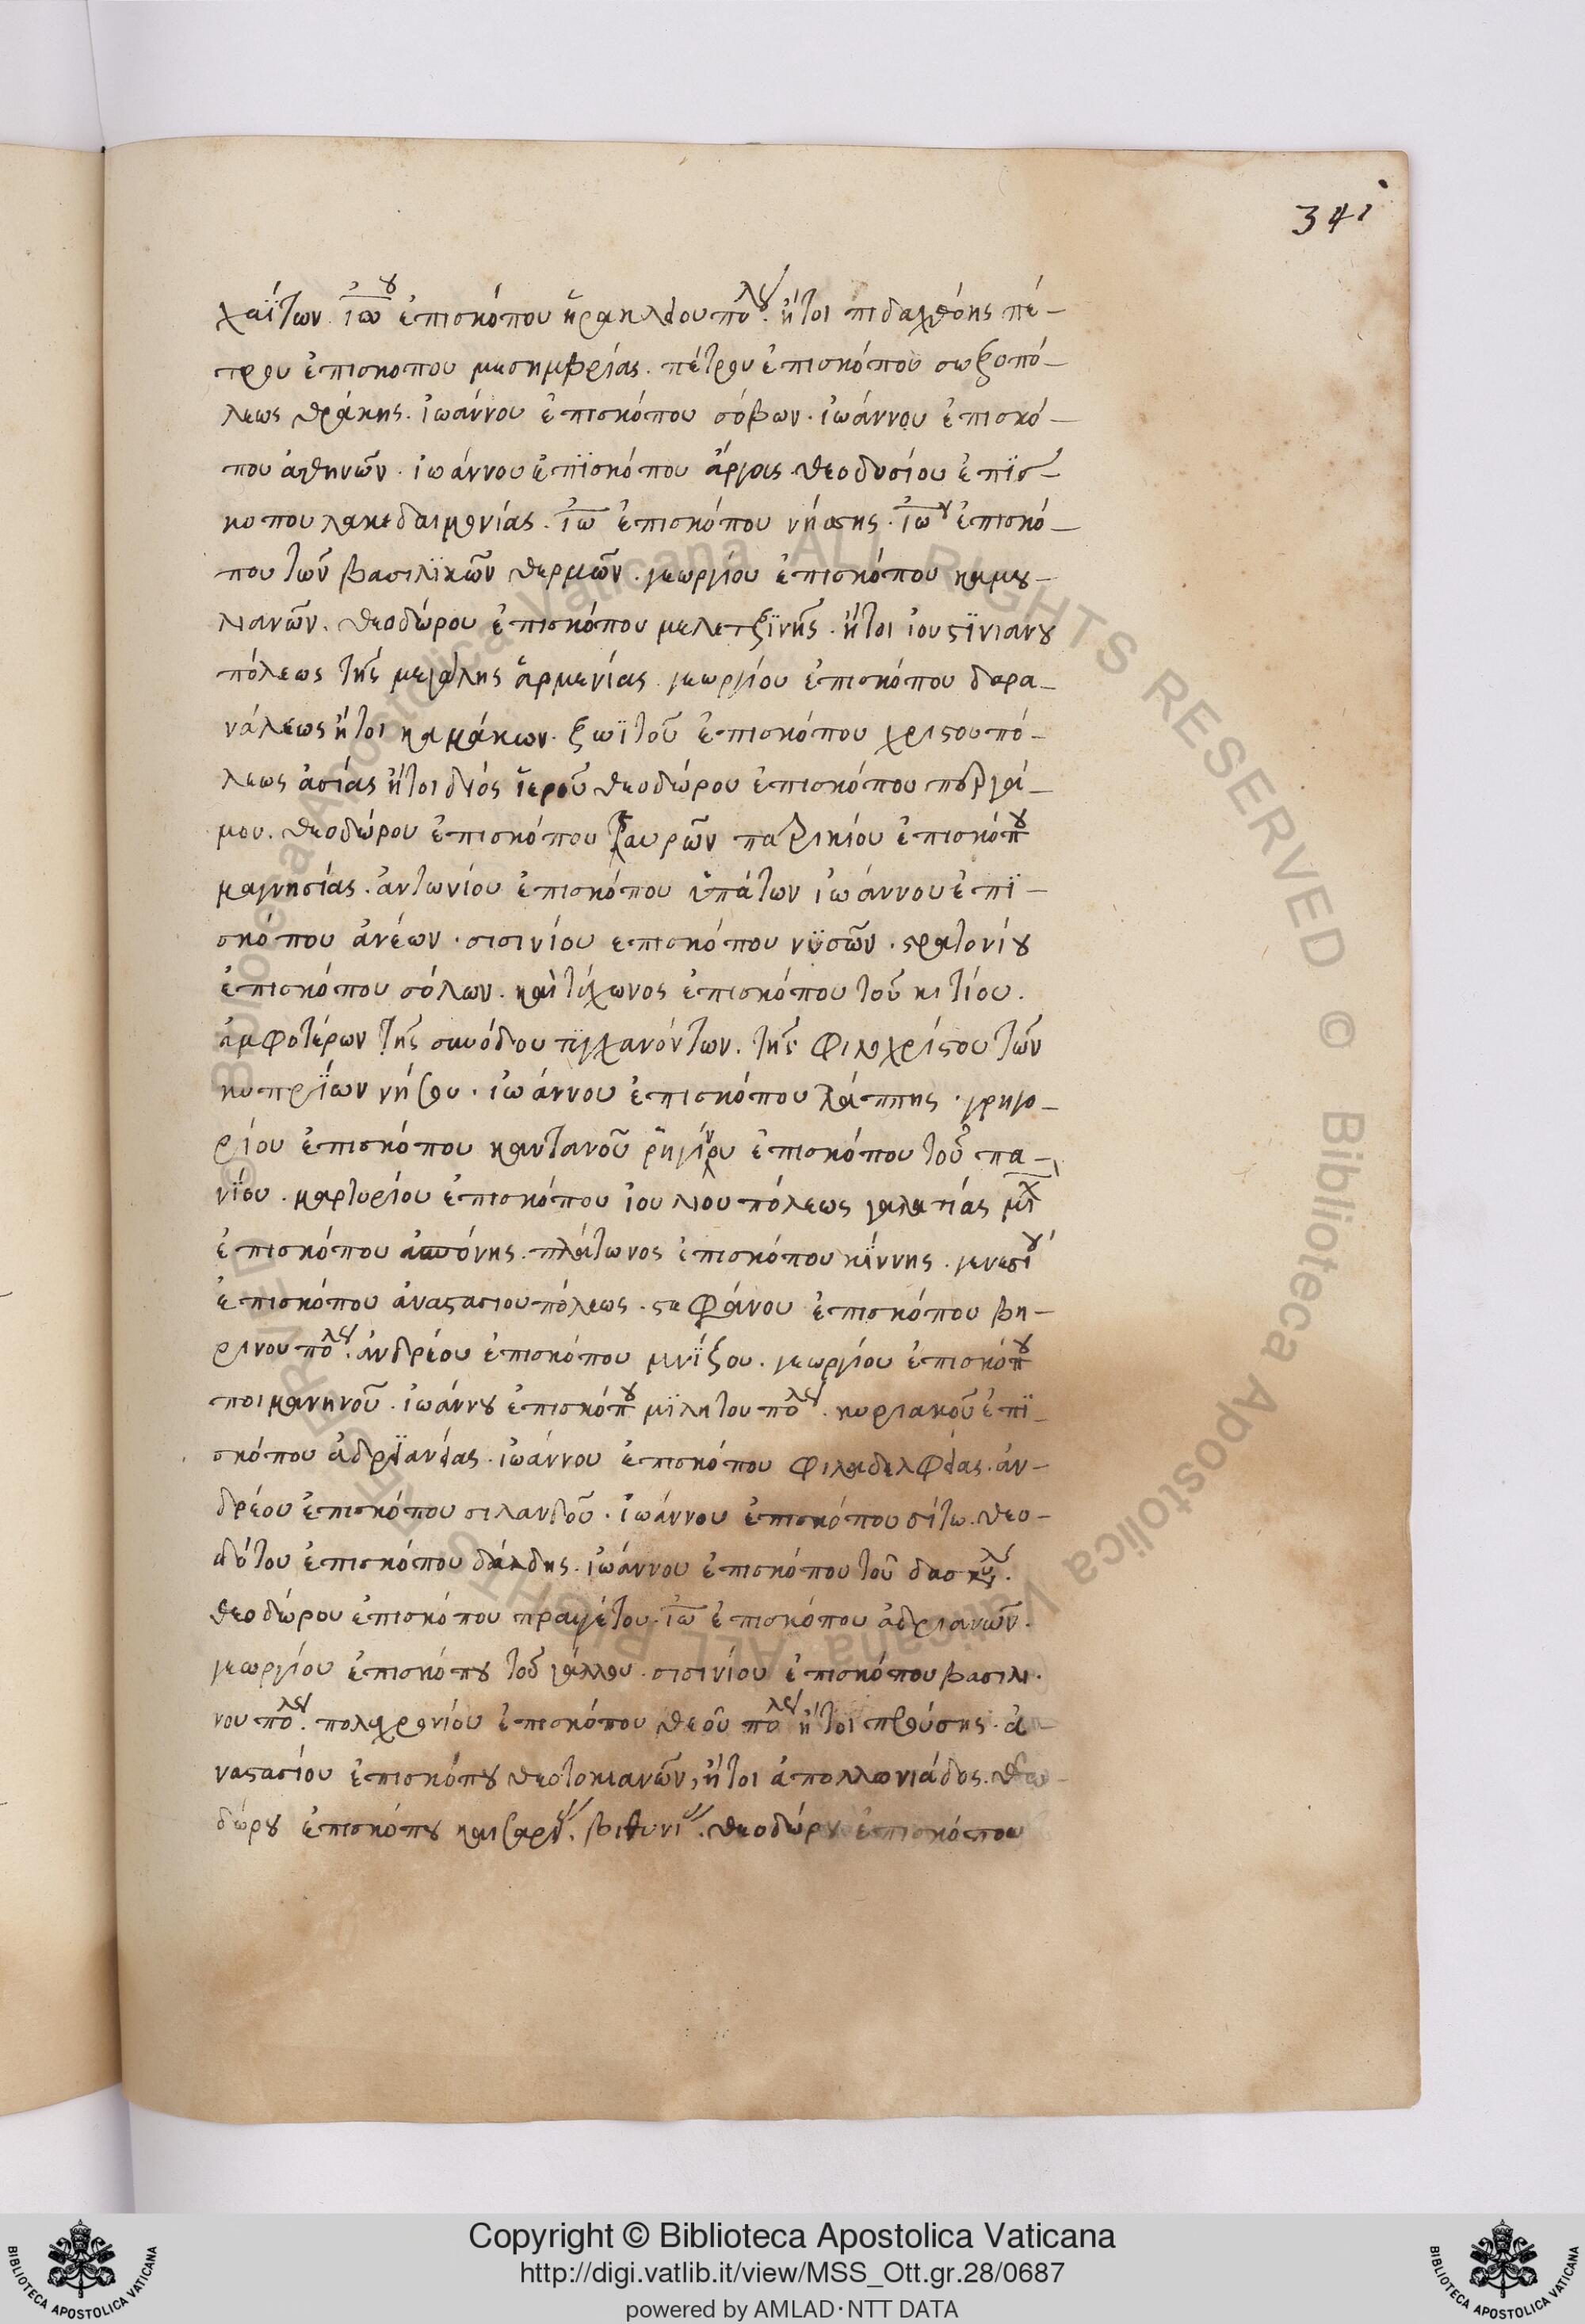 341
χαΐτων. ἰω̅ου ἐπισκόπου ἡρακλείουπολ. ἤτοι πιδαχθόης πέ-
τρου ἐπισκοπου μεσημβρίας. πέτρου ἐπισκόπου σωζοπό-
λεως θράκης. ἰωάννου ἐπισκόπου σόβων. ἰωάννου ἐπισκό-
που ἀθηνῶν. ἰωάννου ἐπϊσκόπου ἄργους. θεοδοσίου ἐπϊσ-
κοπου λακεδαιμονίας. ἰω̅ ἐπισκόπου νύσσης. ἰω̅ου ἐπισκό-
που τῶν βασιλϊκῶν θερμῶν. γεωργίου ἐπισκόπου καμου-
λιανῶν. θεοδώρου ἐπισκόπου μελετζϊνῆς. ἤτοι ἰουστϊνιανου
πόλεως τῆς μεγάλης ἀρμενίας. γεωργίου ἐπισκόπου δαρα-
νάλεως ἤτοι καμάκων. ζωϊτοῦ ἐπισκόπου χριστουπό-
λεως ἀσίας ἤτοι διός ἱεροῦ θεοδώρου ἐπισκόπου περγά-
μου. θεοδώρου ἐπισκόπου αυρῶν πατρικίου ἐπισκόπου
μαγνησίας. ἀντωνίου ἐπισκόπου ὑπάτων ἰωάννου ἐπϊ-
σκόπου ἀνέων. σισινίου επισκόπου νϋσῶν. στρατονίου
ἐπισκόπου σόλων. καὶ τύχωνος ἐπισκόπου τοῦ κιτίου.
ἀμφοτέρων τῆς συνόδου τϋγχανόντων. τῆς φιλοχρίστου τῶν
κυπρΐων νήσου. ἰωάννου ἐπισκόπου λάππης. γρηγο-
ρίου ἐπισκόπου καντανοῦ ῥηγίνου ἐπισκόπου τοῦ πα-
νΐου. μαρτυρίου ἐπισκόπου ἰουλιουπόλεως γαλατίας μιχ
ἐπισκόπου ἀσπόνης. πλάτωνος ἐπισκόπου κΐννης. γενεσίου
ἐπισκόπου ἀναστασιουπόλεως. στεφάνου ἐπισκόπου βη-
ρινουπολ. ἀνδρέου ἐπισκόπου μνϊζου. γεωργίου ἐπισκόπου
ποιμανηνοῦ. ἰωάννου ἐπισκόπου μϊλητουπολ. κυριακοῦ ἐπϊ-
σκόπου ἀδρϊανείας. ἰωάννου ἐπισκόπου φιλαδελφείας. ἀν-
δρέου ἐπισκόπου σιλανδοῦ. ἰωάννου ἐπισκόπου σίτω. θεο-
δότου ἐπισκόπου δάλδης. ἰωάννου ἐπισκόπου τοῦ δασκυλ.
θεοδώρου ἐπισκόπου πραγέτου. ἰω̅ ἐπισκόπου ἀδριανῶν.
γεωργίου ἐπισκόπου τοῦ γάλλου. σισινίου ἐπισκόπου βασιλι.
νουπολ. πολυχρονίου ἐπισκόπου θεοῦ πολ ἤτοι προύσης. ἀ-
ναστασίου ἐπισκόπου θεοτοκιανῶν, ἤτοι ἀπολλωνιάδος. θεο-
δώρου ἐπισκόπου καισαρ. βιθυνι. θεοδώρου ἐπισκόπου
Copyright © Biblioteca Apostolica Vaticana
http://digi.vatlib.it/view/MSS_Ott.gr.28/0687
powered by AMLAD·NTT DATA